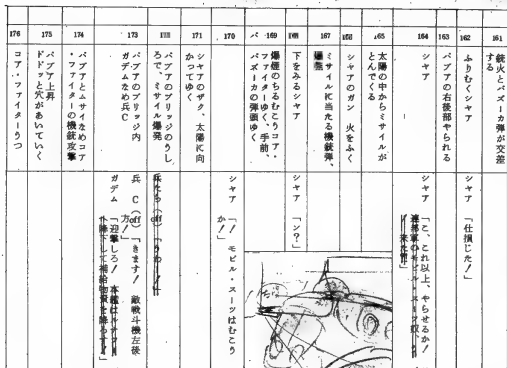 161
銃火とバズーカ弾が交差
する
162
ふりむくシャア
シャア 「仕損じた!」
163
パプアの右後部やられる
164
シャア
シャア 「こ、これ以上、やらせるか!
連邦軍のモビル・スーツ奴、
165
太陽の中からミサイルが
とんでくる
166
シャアのガン 火をふく
167
ミサイルに当たる機銃弾、
爆発
168
下をみるシャア
シャア 「ン?」
169
爆煙のちるむこうコア・
ファイターゆく、手前、
バズーカの弾頭ゆく
170
シャア 「! モビル・スーツはむこう
か!」
171
シャアのザク、太陽に向
かってゆく
172
パプアのブリッジのうし
ろで、ミサイル爆発
兵たち(off)「うわー!」
173
パプアのブリッジ内
ガデムなめ兵C
兵 C(off)「きます! 敵戦斗機左後
方!」
ガデム 「迎撃しろ! 本艦は
降下して補給物資を降ろす!」
174
パプアとムサイなめコア
・ファイターの機銃攻撃
175
パプア上昇
ドドッと穴があいていく
176
コア・ファイターうつ